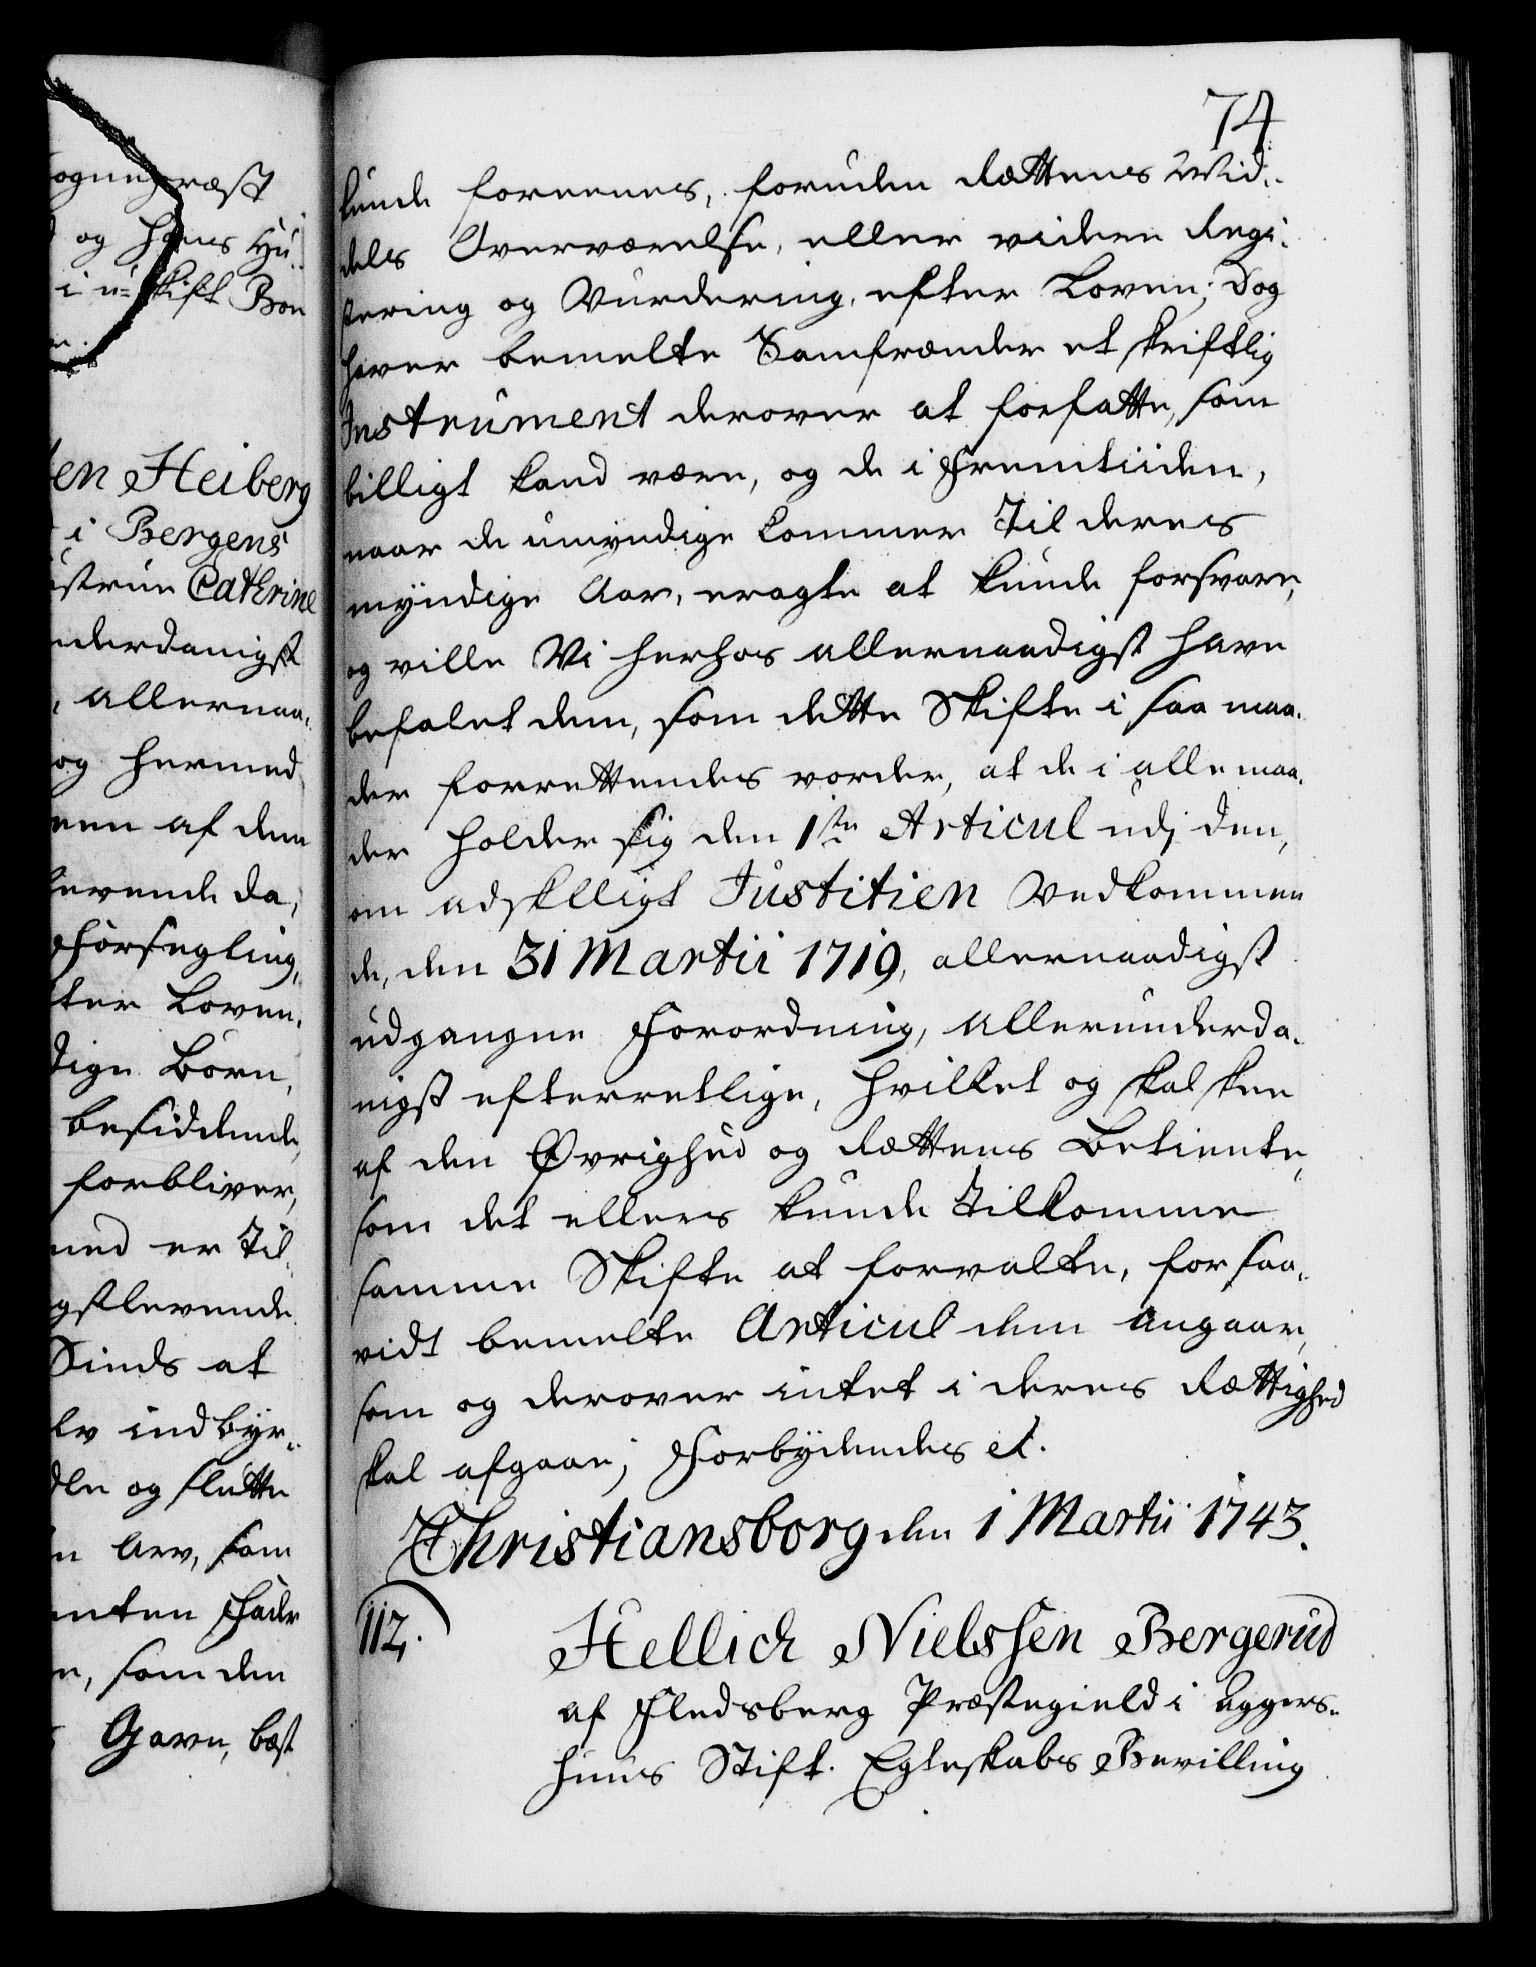 ognepræst
og Hans Hu-
i u-skift Boe
en Heiberg
i Bergens
ustrue Cathrine
nderdanigst
allernaa-
og hermed
een af dem
levende da,
Forsegling,
ter Loven,
dige Børn,
besiddende,
forbliver,
med er til,
gstlevende
Sinds at
lv indbyr-
dle og slutte
n Arv, som
nten Fader
e, som den
Gavn, best
74
kunde foreenes, foruden Rættens Mid-
dels Overværelse, eller viidere Regi-
stering og Vurdering, efter Loven; Dog
haver bemelte Samfrænder et skriftlig
Instrument derover at forfatte, som
billigt kand være, og de i Fremtiiden,
naar de umyndige kommer til deres
myndige Aar, eragte at kunde forsvare,
og ville Vi herhos allernaadigst have
befalet dem, som dette Skifte i saa maa-
der forrettendes vorder, at de i alle maa-
der holder sig den 1ste Articul udj den,
om adskilligt Justitien Vedkommen
de, den 31 Martii 1719, allernaadigst
udgangne Forordning, allerunderda-
nigst efterretlige, hvilket og skal skee
af den Øvrighed og Rættens Betiente,
som det ellers kunde tilkomme
samme Skifte at forvalte, for saa-
vidt bemelte Articul dem angaar,
som og derover intet i deres Rættighed
skal afgaae; Forbydendes et.
Christiansborg den 1 Martii 1743.
112.
Hellich Nielssen Bergerud
af Fledsberg Præstegield i Aggers-
huus Stift. Egteskabs Bevilling